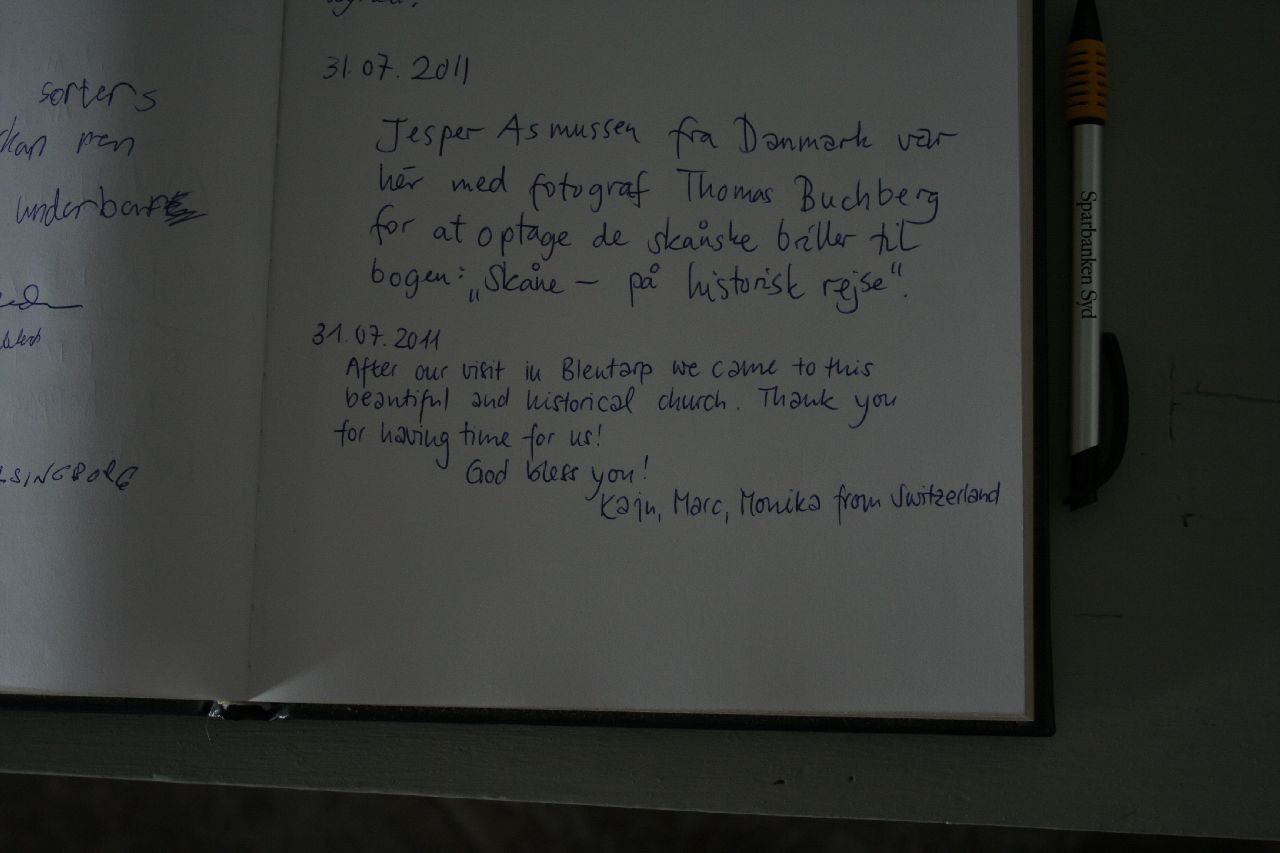 sorters
kan men
underbart
LSINGBORG
31.07.2011
Jesper Asmussen fra Danmark var
her med fotograf Thomas Buchberg
for at optage de skånske briller til
bogen: „Skåne – på historisk rejse".
31.07.2011
After our visit in Blentarp we came to this
beautiful and historical church. Thank you
for having time for us!
God bless you!
Marc, Monika from Switzerland
Sparbanken Syd